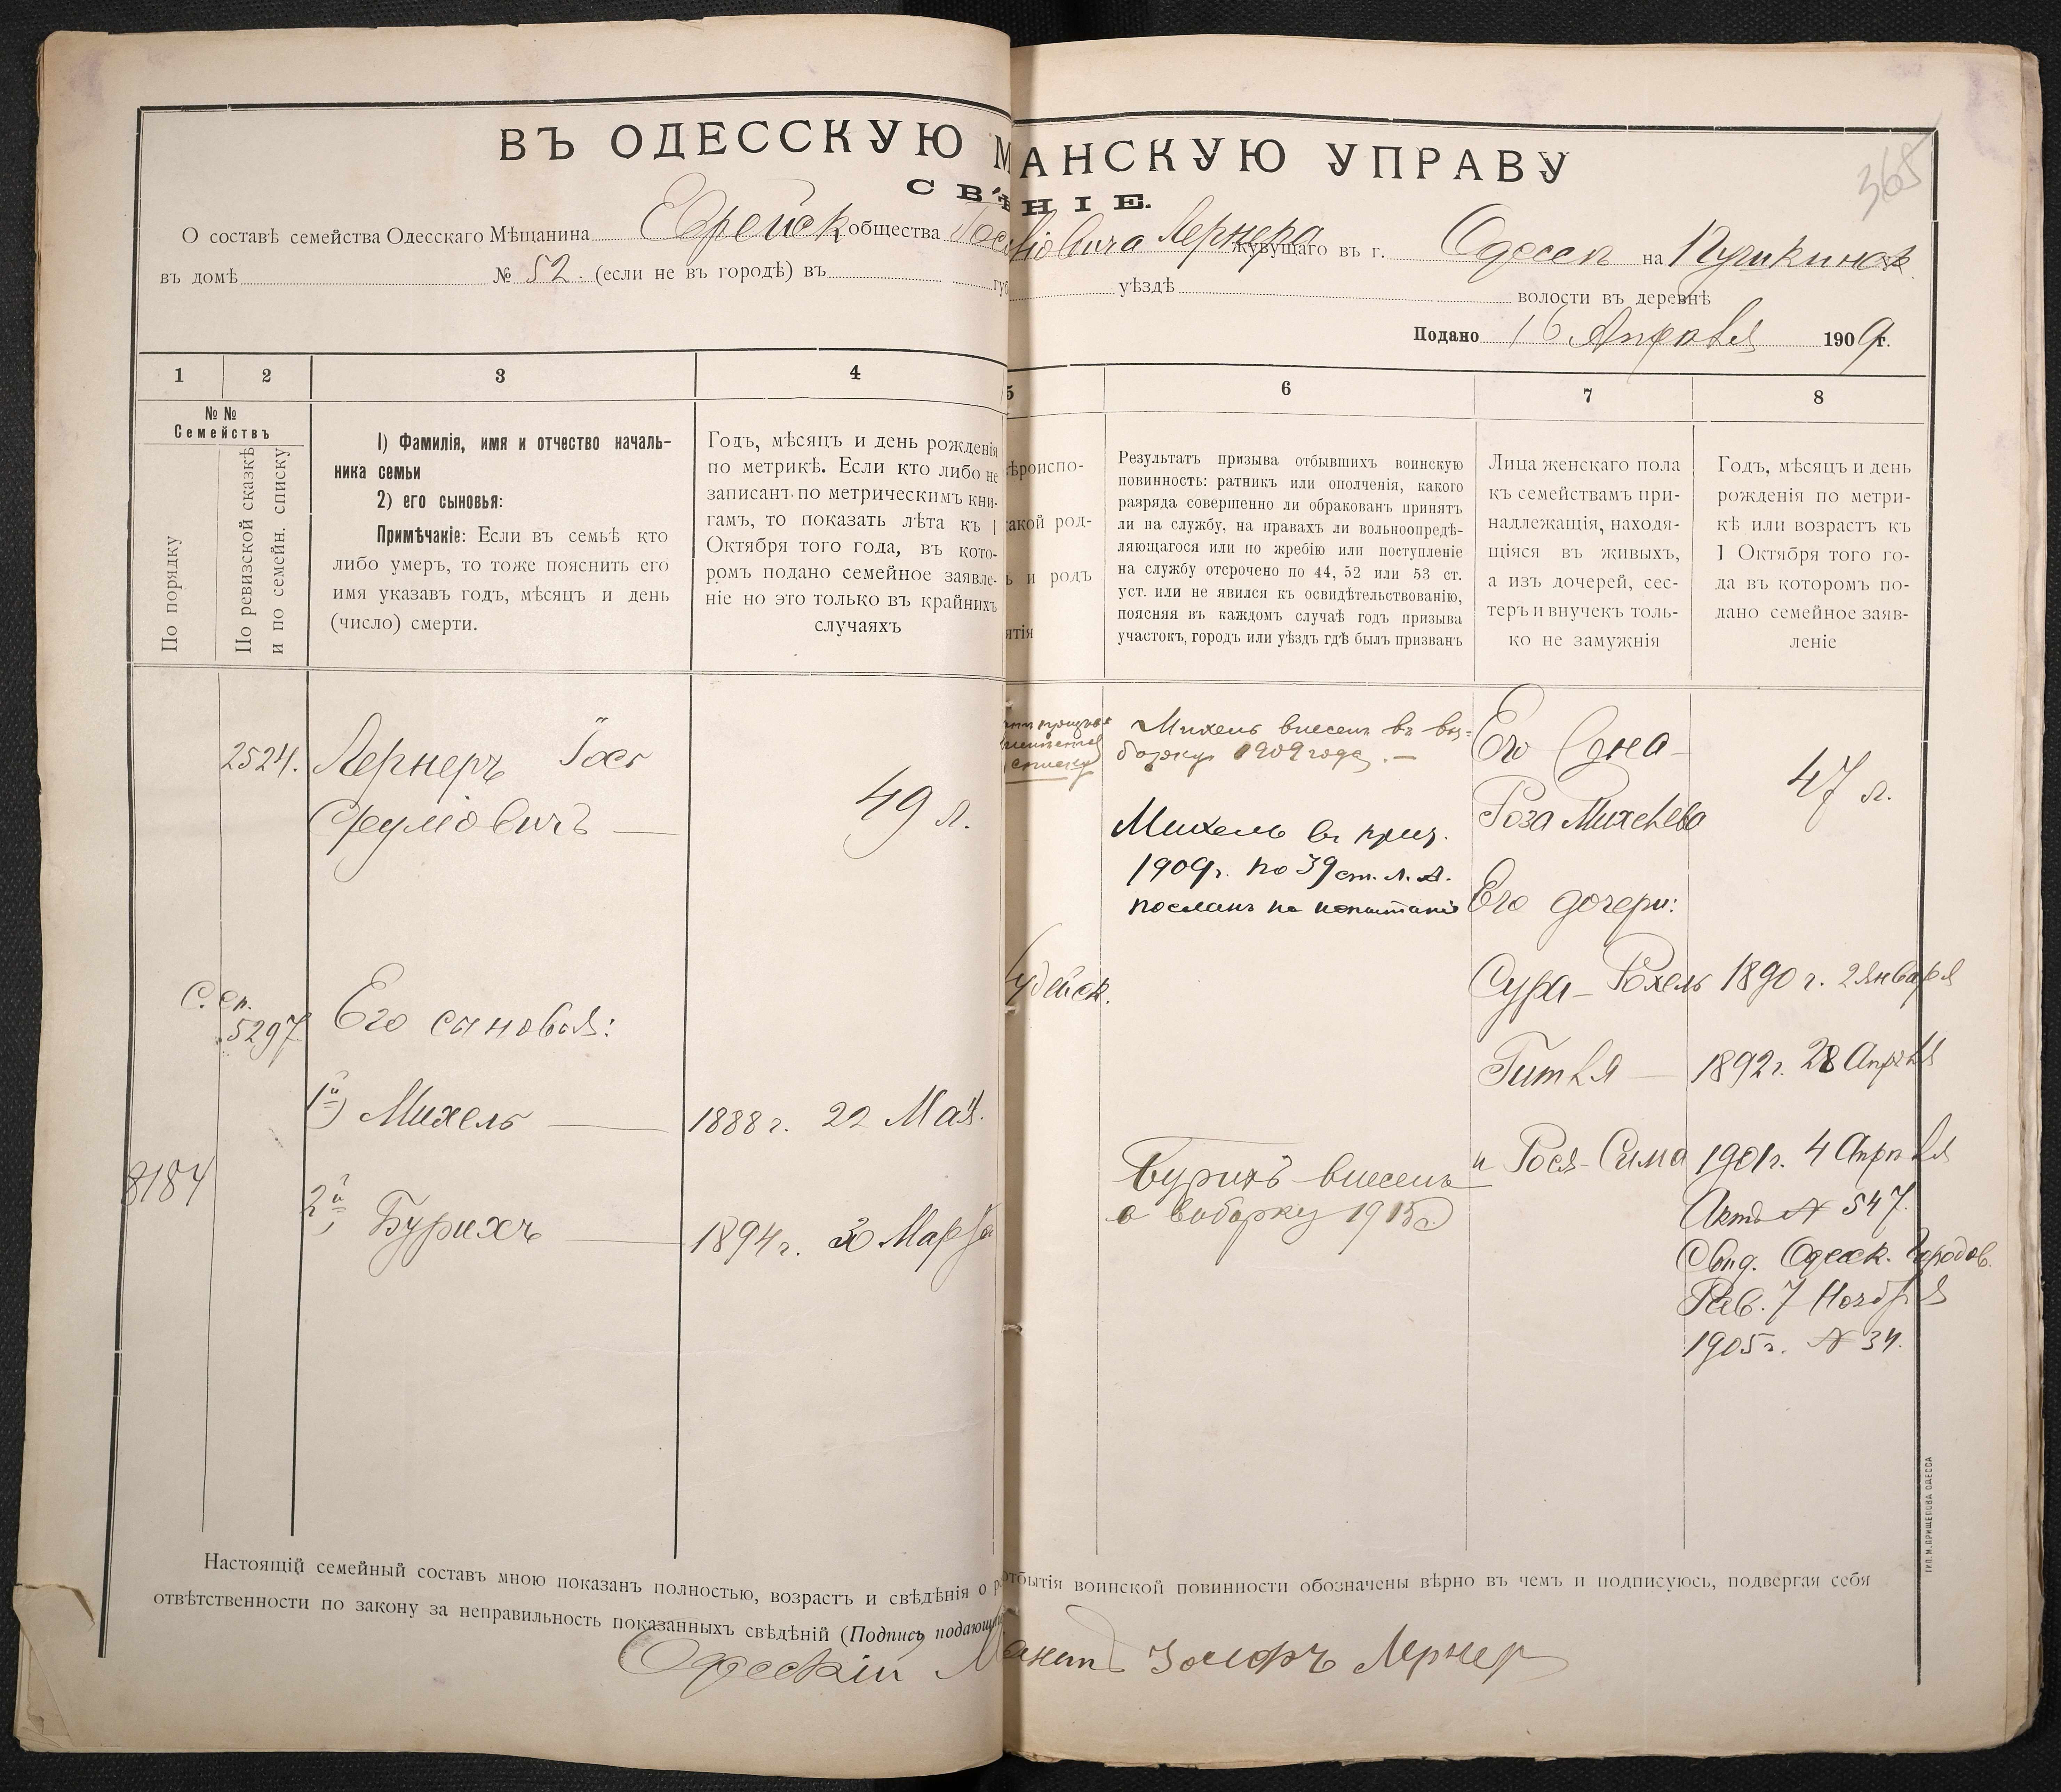 ВЪ ОДЕССКУЮ М АНСКУЮ УПРАВУ
СВѢ НІЕ.
365
О составѣ семейства Одесскаго Мѣщанина Еврейск общества Лернера живущаго въ г. Одессѣ на Пушкинск
въ домѣ № 52. (если не въ городѣ) въ губ уѣздѣ волости въ деревнѣ
Подано 16 Апрѣля 1909 г.
1 2 3 4 5 6 7 8
№№ Семействъ
По порядку
По ревизской сказкѣ
и по семейн. списку
1) Фамилія, имя и отчество началь-
ника семьи
2) его сыновья:
Примѣчаніе: Если въ семьѣ кто
либо умеръ, то тоже пояснить его
имя указавъ годъ, мѣсяцъ и день
(число) смерти.
Годъ, мѣсяцъ и день рожденія
по метрикѣ. Если кто либо не
записанъ по метрическимъ кни-
гамъ, то показать лѣта къ 1
Октября того года, въ кото-
ромъ подано семейное заявле-
ніе но это только въ крайнихъ
случаяхъ
ѣроиспо-
акой род-
ь и родъ
ятія
Результатъ призыва отбывшихъ воинскую
повинность: ратникъ или ополченія, какого
разряда совершенно ли обракованъ принятъ
ли на службу, на правахъ ли вольноопредѣ-
ляющагося или по жребію или поступленіе
на службу отсрочено по 44, 52 или 53 ст.
уст. или не явился къ освидѣтельствованію,
поясняя въ каждомъ случаѣ годъ призыва
участокъ, городъ или уѣздъ гдѣ былъ призванъ
Лица женскаго пола
къ семействамъ при-
надлежащія, находя-
щіяся въ живыхъ,
а изъ дочерей, сес-
теръ и внучекъ толь-
ко не замужнія
Годъ, мѣсяцъ и день
рожденія по метри-
кѣ или возрастъ къ
1 Октября того го-
да въ которомъ по-
дано семейное заяв-
леніе
2524. Лернеръ Іос
Фруміовичъ —
49 л.
С. сп.
5297
Его сыновья:
1й) Михель — 1888 г. 22 Мая.
8184
2й) Бурихъ — 1894 г. 30 Марта
списку
удейск.
Михель внесенъ въ вы-
борку 1909 года. —
Михель въ приз.
1909 г. по 39 ст. л. А.
посланъ на испытаніе
Бурихъ внесенъ
в выборку 1915 г
Его жена
Роза Михелева
47 л.
Его дочери:
Сура-Рохель 1890 г. 2 Января
Гитля — 1892 г. 28 Апрѣля
и Рося-Сима 1901 г. 4 Апрѣля
Актъ № 547.
Свид. Одесск. Городов.
Рав. 7 Ноября
1905 г. № 34.
Настоящій семейный составъ мною показанъ полностью, возрастъ и свѣдѣнія о отбытія воинской повинности обозначены вѣрно въ чемъ и подписуюсь, подвергая себя
отвѣтственности по закону за неправильность показанныхъ свѣдѣній (Подпись подающ
Одесскій М щанинъ Лернер
ТИП. М. ПРИЩЕПОВА ОДЕССА